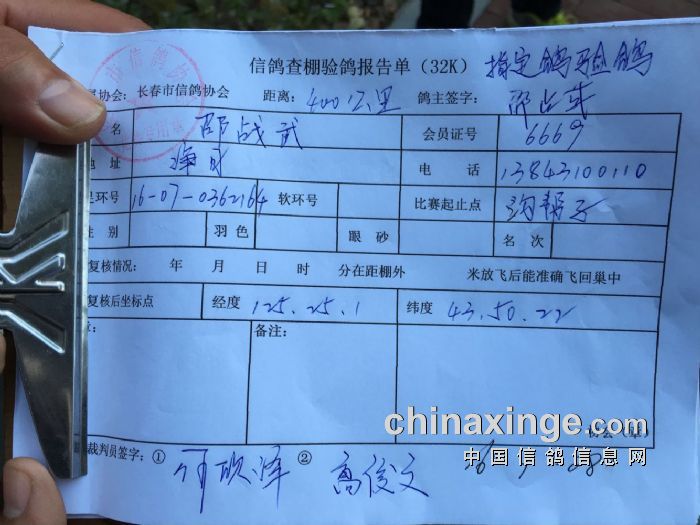 信鸽查棚验鸽报告单（32K） 指定鸽验鸽
属协会: 长春市信鸽协会 距离: 400公里 鸽主签字: 邵战武
名 邵战武 会员证号 6669
地址 电话 13843100110
足环号 16-07-0362164 软环号 比赛起止点 沟帮子
性别 羽色 眼砂 名次
复核情况: 年 月 日 时 分在距棚外 米放飞后能准确飞回巢中
复核后坐标点 经度 125.25.1 纬度 43.50.22
备注:
chinaxinge.com
协会（章）
中国信鸽信息网
裁判员签字: ① ② 高俊文